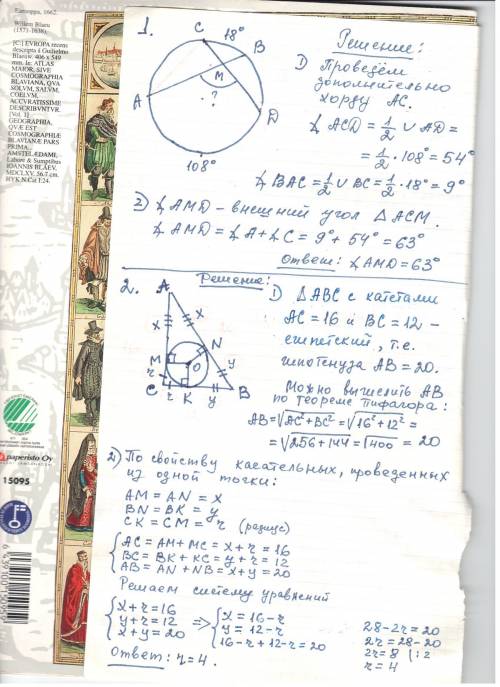 Europa, 1662.
Willem Blaeu
(1571-1638).
[C.] EVROPA recens
descripta à Guilielmo
Blaeuw. 406 x 549
mm. In: ATLAS
MAIOR, SIVE
COSMOGRAPHIA
BLAVIANA, QVA
SOLVM, SALVM,
COELVM,
ACCVRATISSIME
DESCRIBVNTVR.
[Vol. 1]
GEOGRAPHIA,
QVÆ EST
COSMOGRAPHIÆ
BLAVIANÆ PARS
PRIMA...
AMSTELÆDAMI,
Labore & Sumptibus
IOANNIS BLAEV,
MDCLXV, 56.7 cm.
HYK N.Cat I:24.
paperisto Oy
15095
1.
C 18°
B
M
A
?
D
108°
Решение:
1) Проведём
дополнительно
хорду AC.
∠ACD = 1/2 ∪ AD =
= 1/2 · 108° = 54°
∠BAC = 1/2 ∪ BC = 1/2 · 18° = 9°
2) ∠AMD - внешний угол △ACM.
∠AMD = ∠A + ∠C = 9° + 54° = 63°
Ответ: ∠AMD = 63°
2.
A
x
x
M
N
O
y
r
C r K y B
Решение:
1) △ABC с катетами
AC = 16 и BC = 12 -
египетский, т.е.
гипотенуза AB = 20.
Можно вычислить AB
по теореме Пифагора:
AB = √AC² + BC² = √16² + 12² =
= √256 + 144 = √400 = 20
2) По свойству касательных, проведенных
из одной точки:
AM = AN = x
BN = BK = y
CK = CM = r (радиус)
{ AC = AM + MC = x + r = 16
BC = BK + KC = y + r = 12
AB = AN + NB = x + y = 20
Решаем систему уравнений
{ x + r = 16
y + r = 12
x + y = 20
=> { x = 16 - r
y = 12 - r
16 - r + 12 - r = 20
28 - 2r = 20
2r = 28 - 20
2r = 8 | : 2
r = 4
Ответ: r = 4.